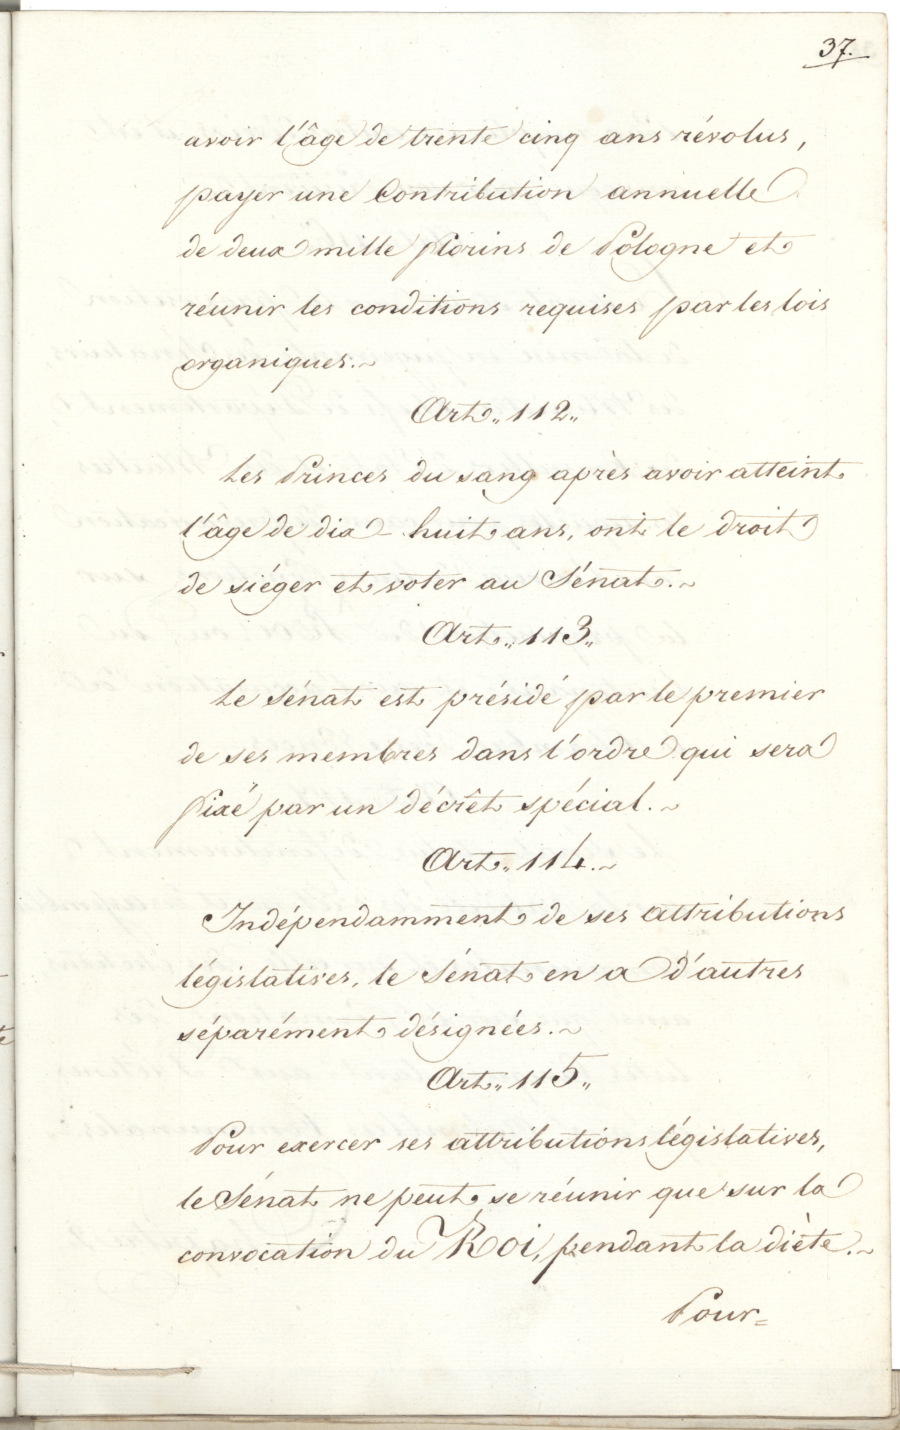 37.
avoir l'âge de trente cinq ans révolus,
payer une Contribution annuelle
de deux mille florins de Pologne et
réunir les conditions requises par les lois
organiques.~
Art„ 112„
Les Princes du sang après avoir atteint
l'âge de dix-huit ans, ont le droit
de siéger et voter au Sénat.~
Art„ 113„
Le Sénat est présidé par le premier
de ses membres dans l'ordre qui sera
fixé par un décrêt spécial.~
Art„ 114.~
Indépendamment de ses attributions
législatives, le Sénat en a d'autres
séparément désignées.~
Art„ 115„
Pour exercer ses attributions législatives,
le Sénat ne peut se réunir que sur la
convocation du Roi, pendant la diète.~
Pour=